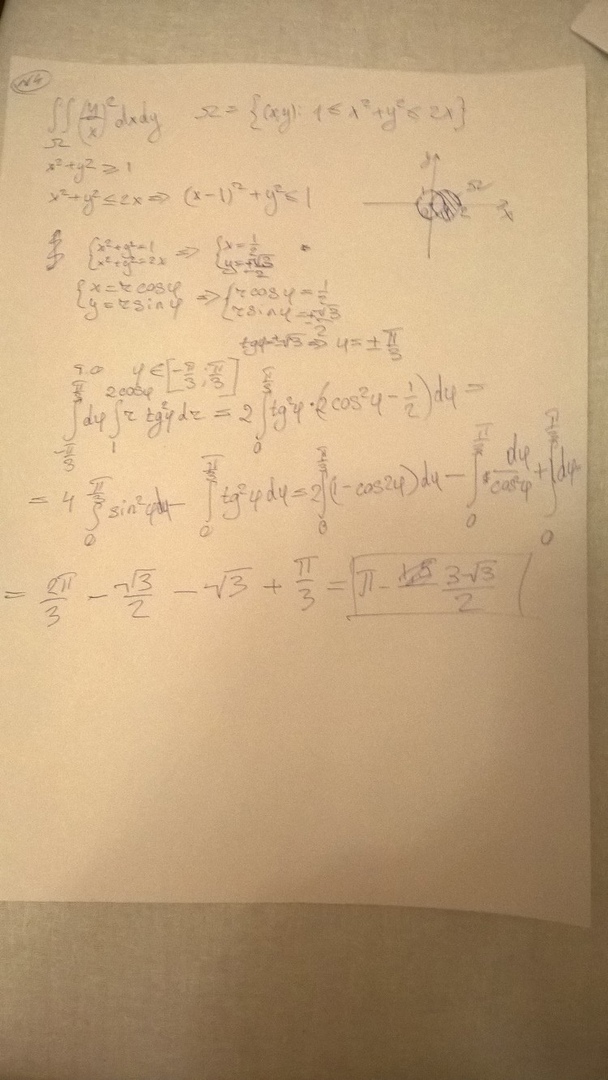 №4
∬_Ω (y/x)² dxdy Ω = {(xy): 1 ≤ x²+y² ≤ 2x}
x²+y² ≥ 1
x²+y² ≤ 2x ⇒ (x-1)²+y² ≤ 1
y Ω
1 2 x
{x²+y²=1 ⇒ {x=1/2
{x²+y²=2x {y=±√3/2
{x=rcosφ ⇒ {rcosφ=1/2
{y=rsinφ {rsinφ=±√3/2
tgφ=±√3 ⇒ φ=±π/3
т.о φ∈[-π/3; π/3]
∫_{-π/3}^{π/3} dφ ∫_1^{2cosφ} r tg²φ dr = 2 ∫_0^{π/3} tg²φ·(2cos²φ - 1/2) dφ =
= 4 ∫_0^{π/3} sin²φdφ - ∫_0^{π/3} tg²φ dφ = 2 ∫_0^{π/3} (1-cos2φ) dφ - ∫_0^{π/3} dφ/cos²φ + ∫_0^{π/3} dφ
= 2π/3 - √3/2 - √3 + π/3 = π - 3√3/2